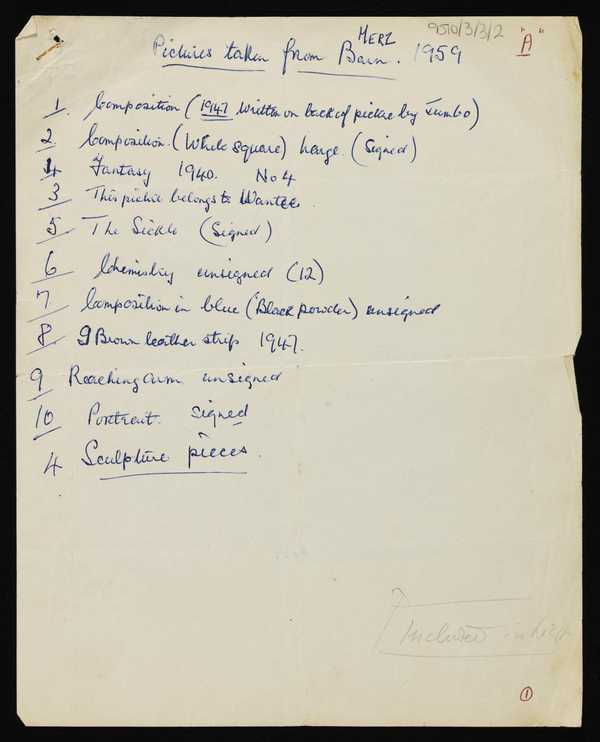 9510/3/3/2
"A"
Pictures taken from MERZ Barn. 1959
1. Composition (1947 written on back of picture by Jumbo)
2. Composition. (White square) Large. (Signed)
4 Fantasy 1940. No 4
3 This picture belongs to Wantee.
5 The Sickle (Signed)
6 Chemistry unsigned (12)
7 Composition in blue (Black powder) unsigned
8. 9 Brown leather strip 1947.
9 Reaching arm unsigned
10 Portrait. signed
4 Sculpture pieces.
Included in list
1